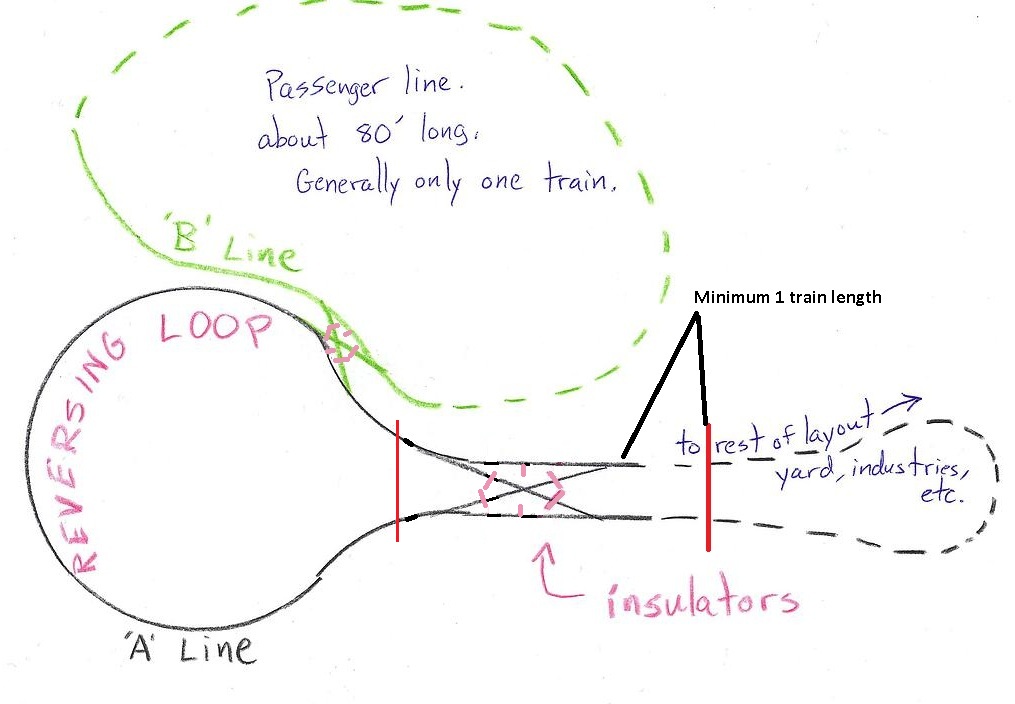 Passenger line.
about 80' long.
Generally only one train.
'B' Line
REVERSING LOOP
Minimum 1 train length
to rest of layout
yard, industries,
etc.
insulators
'A' Line